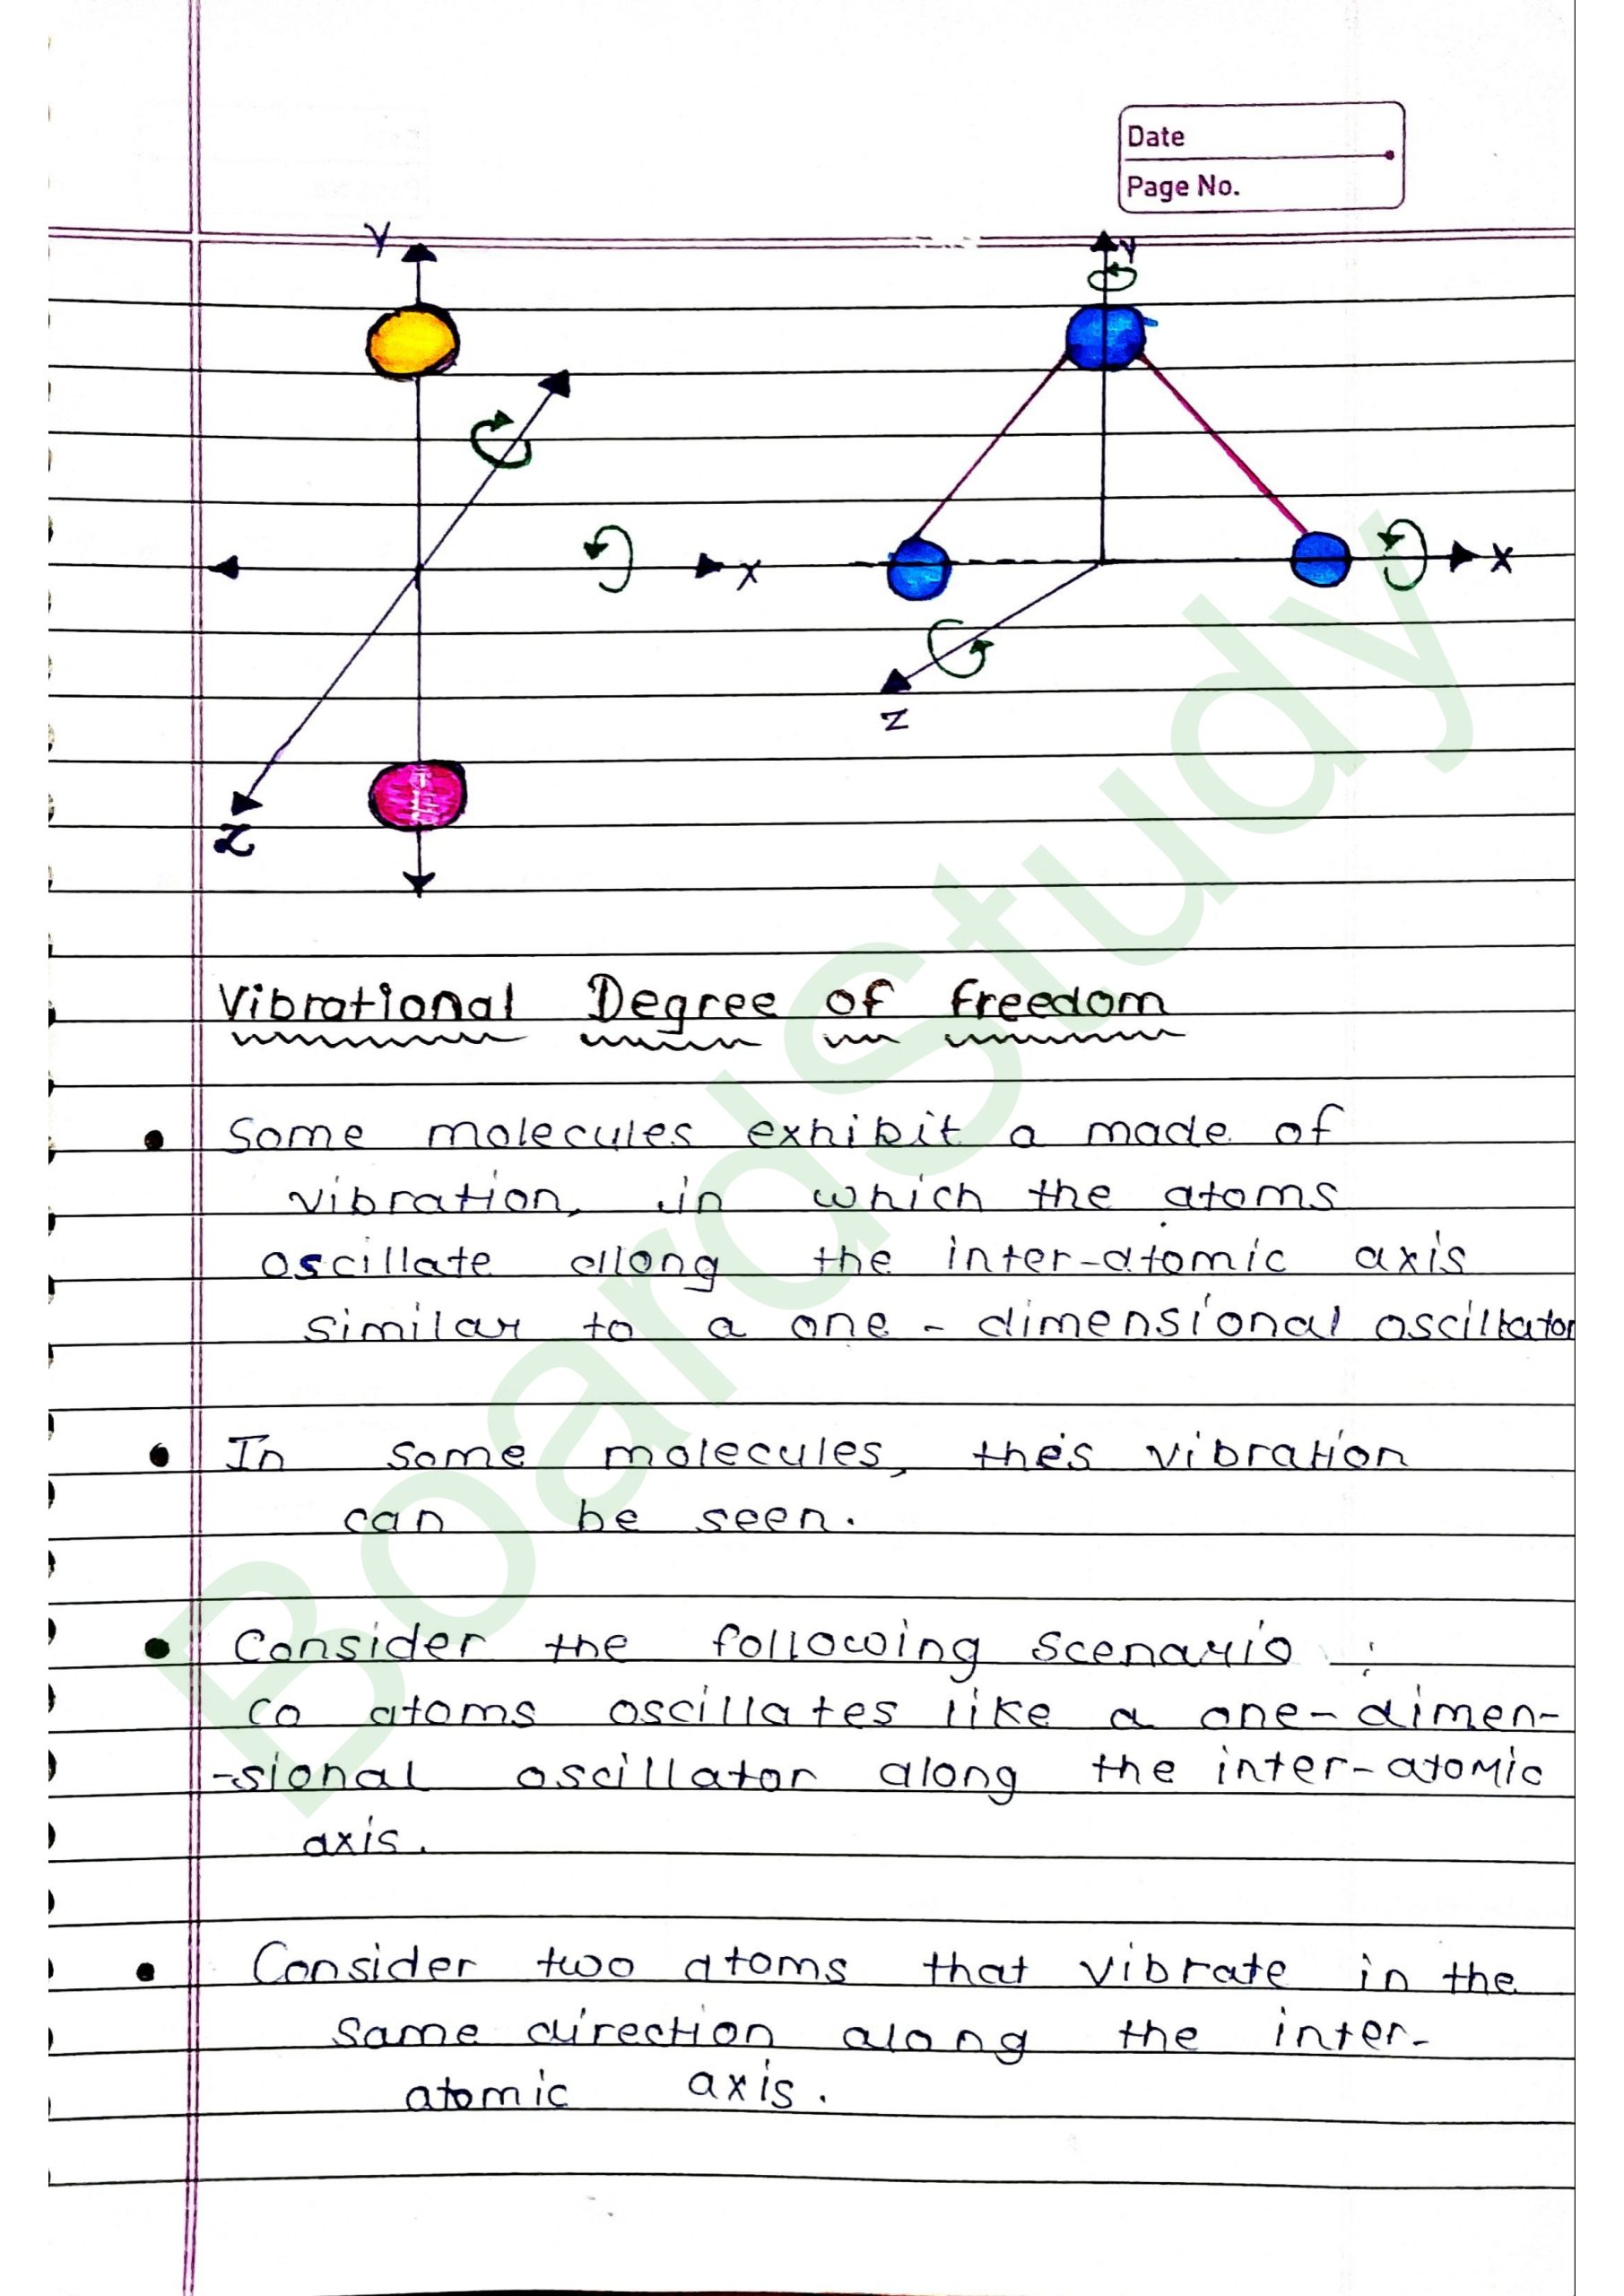 Date
Page No.
Y
Y
X
X
Z
Z
Vibrational Degree of freedom
Some molecules exhibit a made of
vibration, in which the atoms
oscillate along the inter-atomic axis
similar to a one - dimensional oscillator
In some molecules, this vibration
can be seen.
Consider the following scenario :
CO atoms oscillates like a one-dimen-
-sional oscillator along the inter-atomic
axis.
Consider two atoms that vibrate in the
same direction along the inter-
atomic axis.
BoardStudy